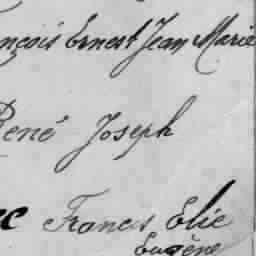 nçois Ernest Jean Marie
René Joseph
ec Francis Elie
Eugène